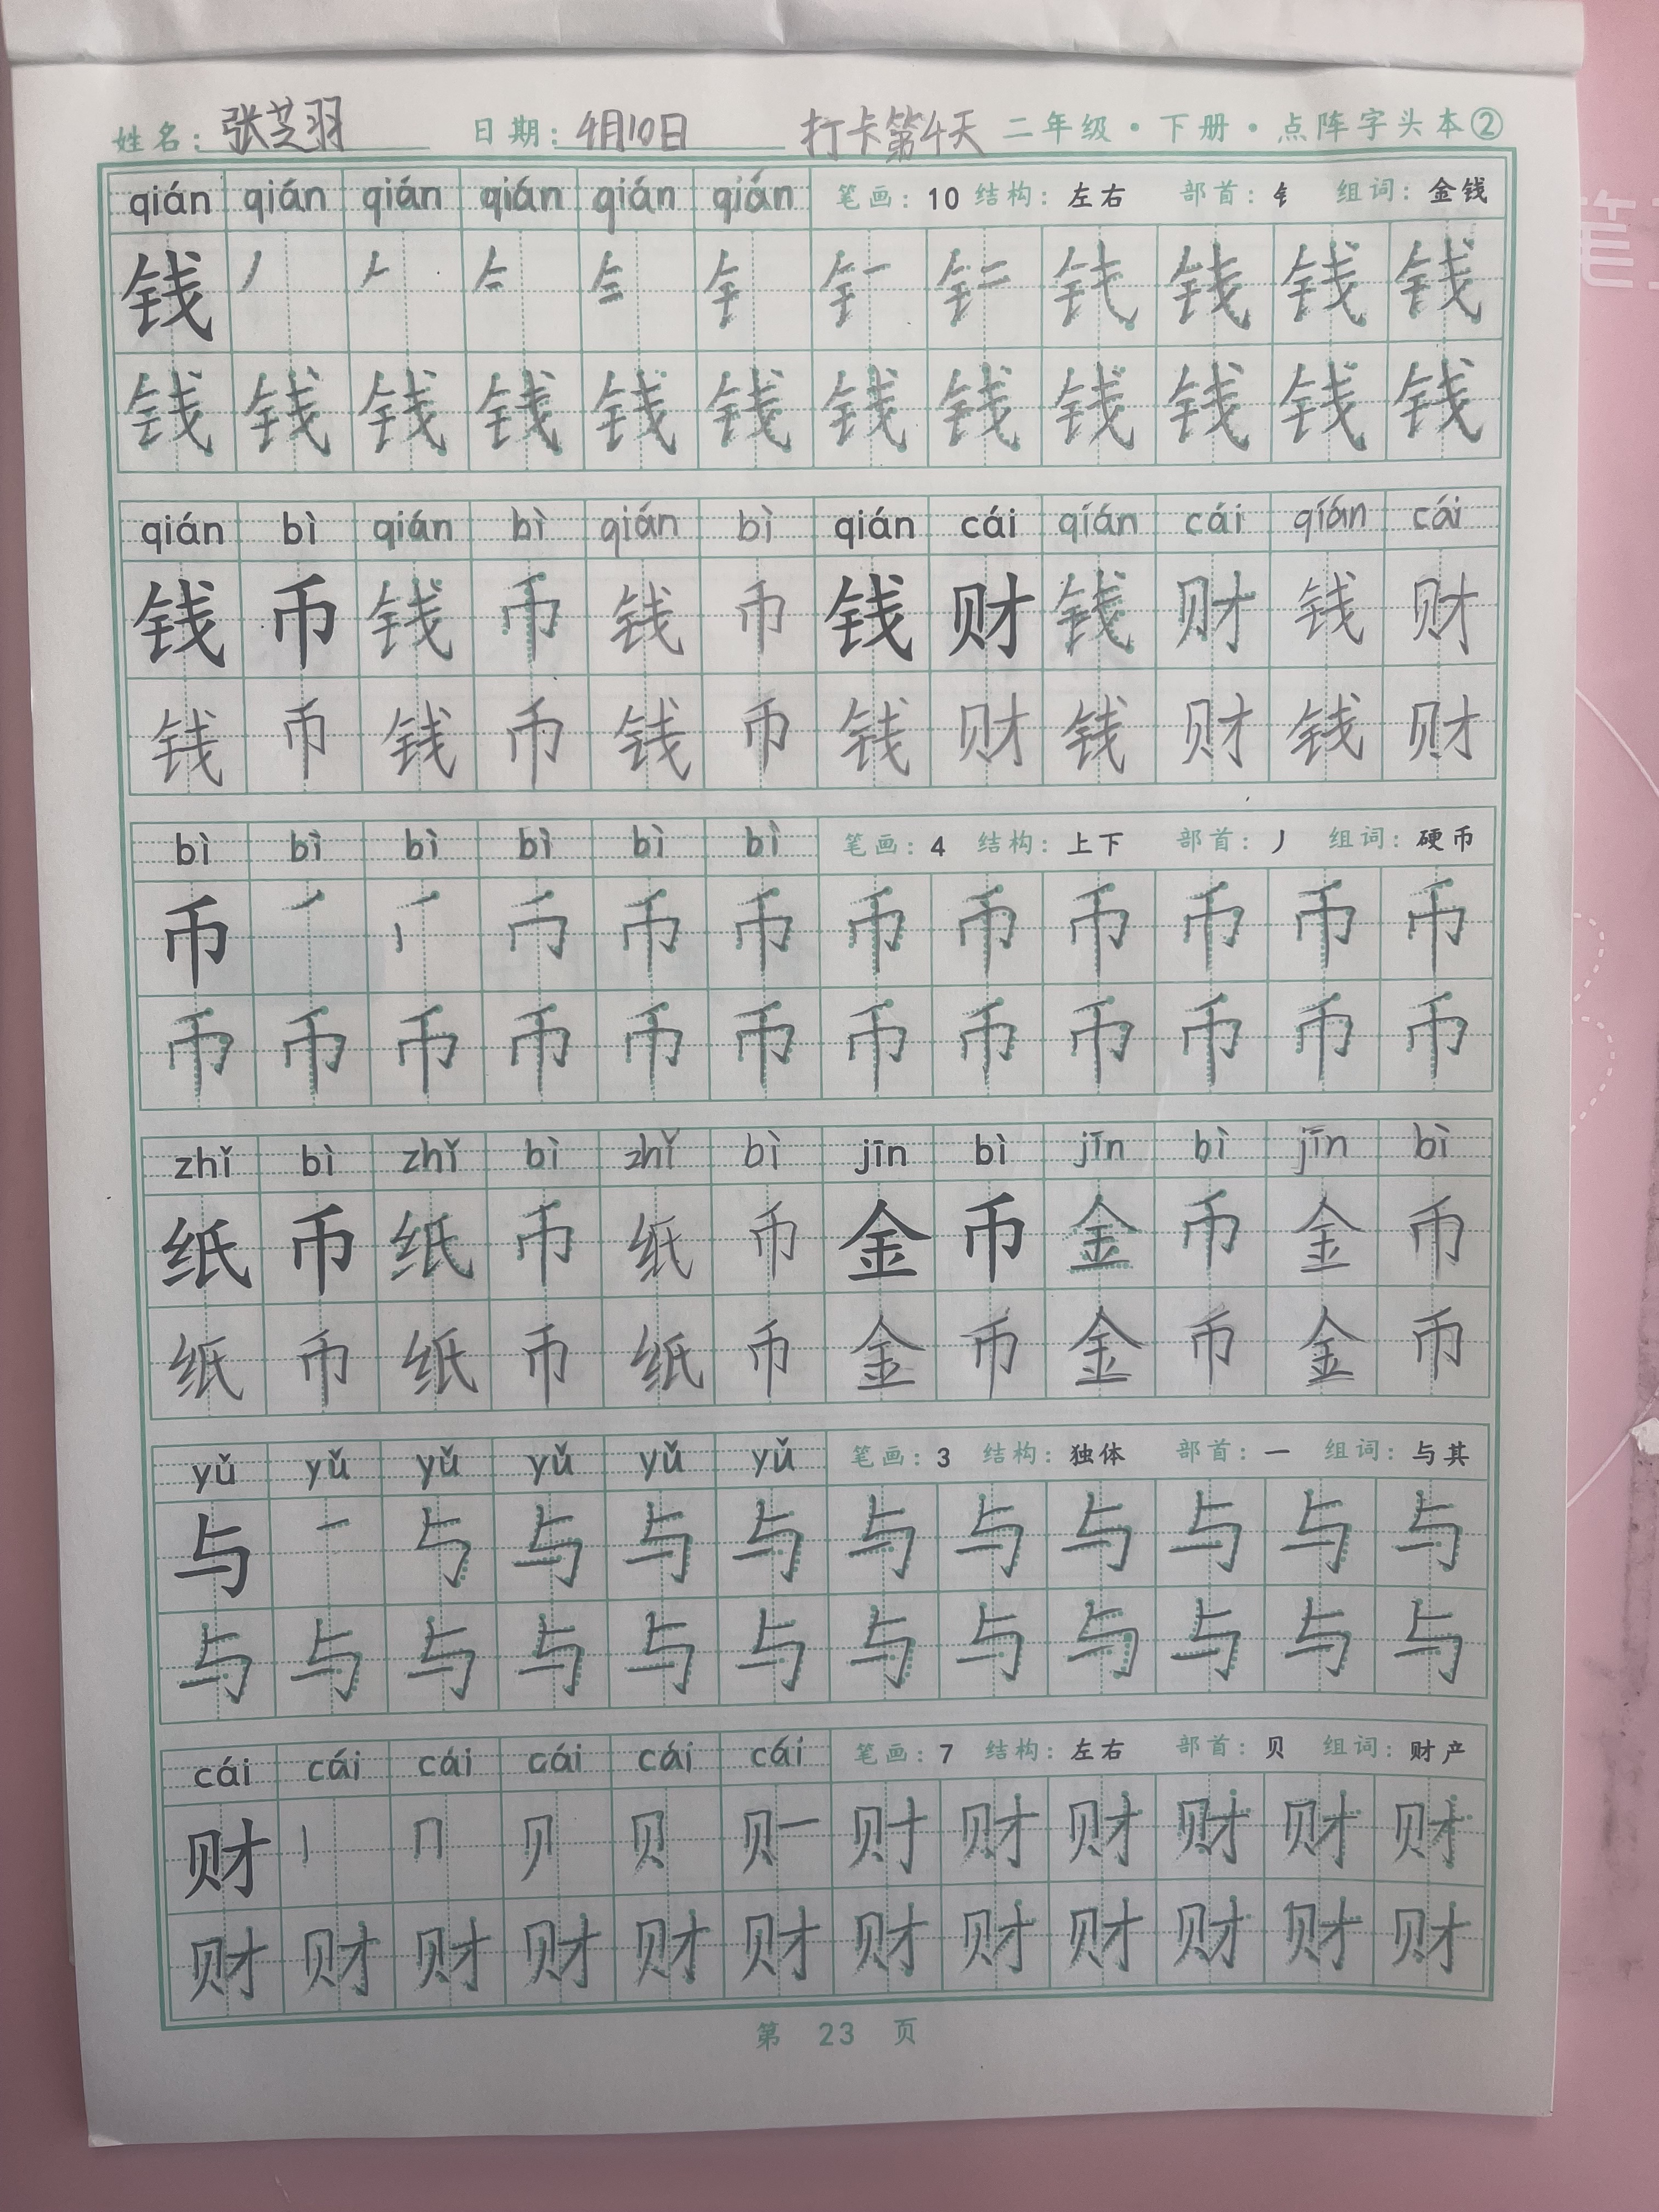 姓名：张芝羽 日期：4月10日 打卡第4天 二年级·下册·点阵字头本②
qián qián qián qián qián qián 笔画：10 结构：左右 部首：钅 组词：金钱
钱 钱 钱 钱 钱
钱 钱 钱 钱 钱 钱 钱 钱 钱 钱 钱 钱
qián bì qián bì qián bì qián cái qián cái qián cái
钱 币 钱 币 钱 币 钱 财 钱 财 钱 财
钱 币 钱 币 钱 币 钱 财 钱 财 钱 财
bì bì bì bì bì bì 笔画：4 结构：上下 部首：丿 组词：硬币
币 币 币 币 币 币 币 币 币
币 币 币 币 币 币 币 币 币 币 币 币
zhǐ bì zhǐ bì zhǐ bì jīn bì jīn bì jīn bì
纸 币 纸 币 纸 币 金 币 金 币 金 币
纸 币 纸 币 纸 币 金 币 金 币 金 币
yǔ yǔ yǔ yǔ yǔ yǔ 笔画：3 结构：独体 部首：一 组词：与其
与 一 与 与 与 与 与 与 与 与 与
与 与 与 与 与 与 与 与 与 与 与 与
cái cái cái cái cái cái 笔画：7 结构：左右 部首：贝 组词：财产
财 丨 冂 贝 财 财 财 财 财
财 财 财 财 财 财 财 财 财 财 财 财
第 23 页